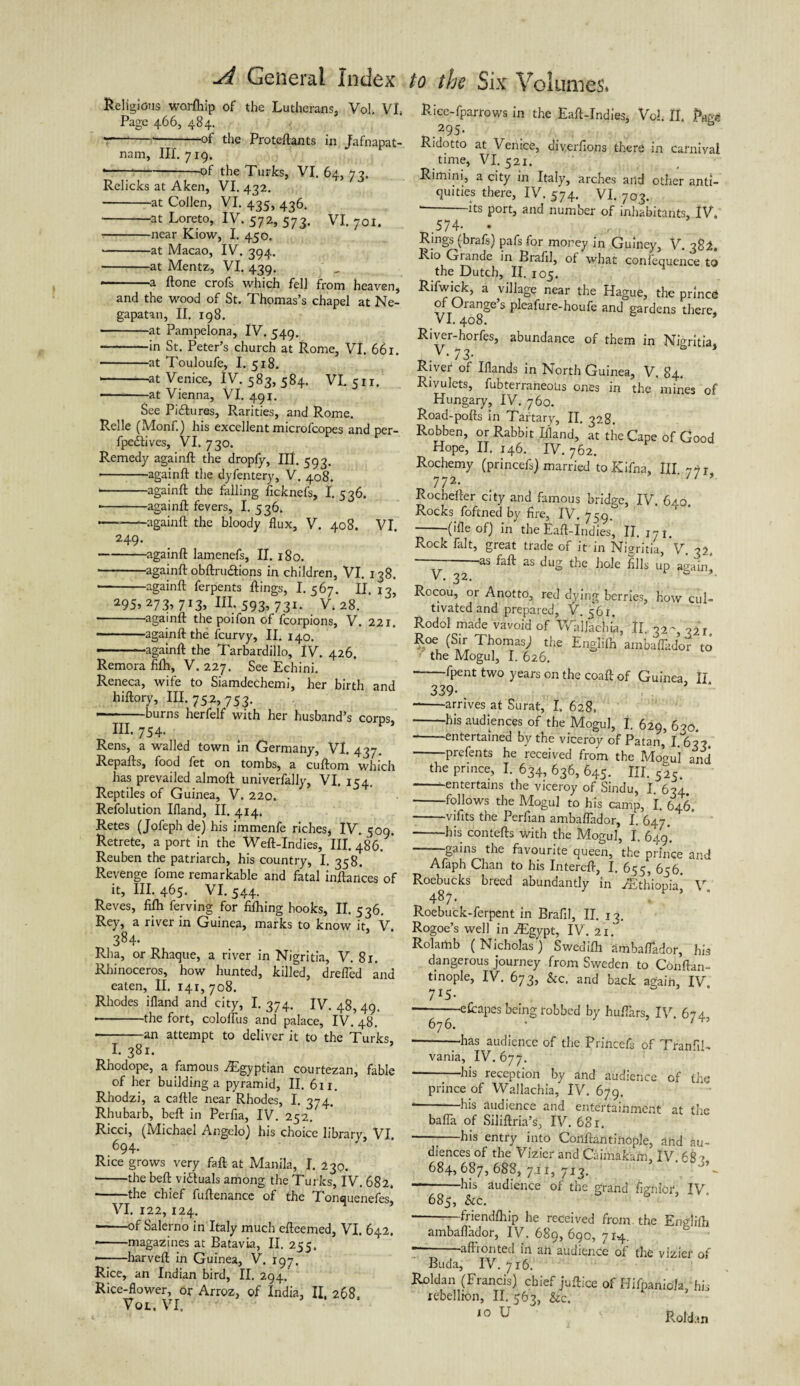 A General Index to the Six Volumes.
Religious worſhip of the Lutherans, Vol. VI.
Page 466, 484.
———of the Proteſtants in Jafnapat-
nam, III. 719.
———of the Turks, VI. 64, 73.
Relicks at Aken, VI. 432.
———at Collen, VI. 435, 436.
———at Loreto, IV. 572, 573. VI. 701.
———near Kiow, I. 450.
———at Macao, IV. 394.
———at Mentz, VI. 439.
———a ſtone croſs which fell from heaven,
and the wood of St. Thomas's chapel at Ne-
gapatan, II. 198.
———at Pampelona, IV. 549.
———in St. Peter's church at Rome, VI. 661.
———at Toulouſe, I. 518.
———at Venice, IV. 583, 584. VI. 511.
———at Vienna, VI. 491.
See Pictures, Rarities, and Rome.
Relle (Monſ.) his excellent microſcopes and per-
ſpectives, VI. 730.
Remedy againſt the dropſy, III. 593.
———againſt the dyſentery, V. 408.
———againſt the falling ſickneſs, I. 536.
———againſt fevers, I. 536.
———againſt the bloody flux, V. 408. VI.
249.
———againſt lameneſs, II. 180.
———againſt obſtructions in children, VI. 138.
———againſt ſerpents ſtings, I. 567. II. 13,
295, 273, 713, III. 593, 731. V. 28.
———againſt the poiſon of ſcorpions, V. 221.
———againſt the ſcurvy, II. 140.
———againſt the Tarbardillo, IV. 426.
Remora fiſh, V. 227. See Echini.
Reneca, wife to Siamdechemi, her birth and
hiſtory, III. 752, 753.
———burns herſelf with her husband's corps,
III. 754.
Rens, a walled town in Germany, VI. 437.
Repaſts, food ſet on tombs, a cuſtom which
has prevailed almoſt univerſally, VI. 154.
Reptiles of Guinea, V. 220.
Reſolution Iſland, II. 414.
Retes (Joſeph de) his immenſe riches, IV. 509.
Retrete, a port in the Weſt-Indies, III. 486.
Reuben the patriarch, his country, I. 358.
Revenge ſome remarkable and fatal inſtances of
it, III. 465. VI. 544.
Reves, fiſh ſerving for fiſhing hooks, II. 536.
Rey, a river in Guinea, marks to know it, V.
384.
Rha, or Rhaque, a river in Nigritia, V. 81.
Rhinoceros, how hunted, killed, dreſſed and
eaten, II. 141, 708.
Rhodes iſland and city, I. 374. IV. 48, 49.
———the fort, coloſſus and palace, IV. 48.
———an attempt to deliver it to the Turks,
I. 381.
Rhodope, a famous Ægyptian courtezan, fable
of her building a pyramid, II. 611.
Rhodzi, a caſtle near Rhodes, I. 374.
Rhubarb, beſt in Perſia, IV. 252.
Ricci, (Michael Angelo) his choice library, VI.
694.
Rice grows very faſt at Manila, I. 230.
———the beſt victuals among the Turks, IV. 682.
———the chief ſuſtenance of the Tonqueneſes,
VI. 122, 124.
———of Salerno in Italy much eſteemed, VI. 642.
———magazines at Batavia, II. 255.
———harveſt in Guinea, V. 197.
Rice, an Indian bird, II. 294.
Rice-flower, or Arroz, of India, II. 268.
VOL. VI.
Rice-ſparrows in the Eaſt-Indies, Vol. II. Page
295.
Ridotto at Venice, diverſions there in carnival
time, VI. 521.
Rimini, a city in Italy, arches and other anti-
quities there, IV. 574. VI. 703.
———its port, and number of inhabitants, IV.
574.
Rings (braſs) paſs for money in Guiney, V. 382.
Rio Grande in Braſil, of what conſequence to
the Dutch, II. 105.
Riſwick, a village near the Hague, the prince
of Orange's pleaſure-houſe and gardens there,
VI. 408.
River-horſes, abundance of them in Nigritia,
V. 73.
River of Iſlands in North Guinea, V. 84.
Rivulets, ſubterraneous ones in the mines of
Hungary, IV. 760.
Road-poſts in Tartary, II. 328.
Robben, or Rabbit Iſland, at the Cape of Good
Hope, II. 146. IV. 762.
Rochemy (princeſs) married to Kifna, III. 771,
772.
Rocheſter city and famous bridge, IV. 640.
Rocks ſoftned by fire, IV. 759.
———(iſle of) in the Eaſt-Indies, II. 171.
Rock ſalt, great trade of it in Nigritia, V. 32.
———as faſt as dug the hole fills up again,
V. 32.
Rocou, or Anotto, red dying berries, how cul-
tivated and prepared, V. 561.
Rodol made vavoid of Wallachia, II. 321.
Roe (Sir Thomas) the Engliſh ambaſſador to
the Mogul, I. 626.
———ſpent two years on the coaſt of Guinea, II.
339.
———arrives at Surat, I. 628.
———his audiences of the Mogul, I. 629, 630.
———entertained by the viceroy of Patan, I. 633.
———preſents he received from the Mogul and
the prince, I. 634, 636, 645. III. 525.
———entertains the viceroy of Sindu, I. 634.
———follows the Mogul to his camp, I. 646.
———viſits the Perſian ambaſſador, I. 647.
———his conteſts with the Mogul, I. 649.
———gains the favourite queen, the prince and
Aſaph Chan to his Intereſt, I. 655, 656.
Roebucks breed abundantly in Æthiopia, V.
487.
Roebuck-ſerpent in Braſil, II. 13.
Rogoe's well in Ægypt, IV. 21.
Rolamb (Nicholas) Swediſh ambaſſador, his
dangerous journey from Sweden to Conſtan-
tinople, IV. 673, &c. and back again, IV.
715.
———eſcapes being robbed by huſſars, IV. 674,
676.
———has audience of the Princeſs of Tranſil-
vania, IV. 677.
———his reception by and audience of the
prince of Wallachia, IV. 679.
———his audience and entertainment at the
baſſa of Siliſtria's, IV. 681.
———his entry into Conſtantinople, and au-
diences of the Vizier and Caimakam, IV. 683,
684, 687, 688, 711, 713.
———his audience of the grand ſignior, IV.
685, &c.
———friendſhip he received from the Engliſh
ambaſſador, IV. 689, 690, 714.
———affronted in an audience of the vizier of
Buda, IV. 716.
Roldan (Francis) chief juſtice of Hiſpaniola, his
rebellion, II. 563, &c.
10 U
Roldan